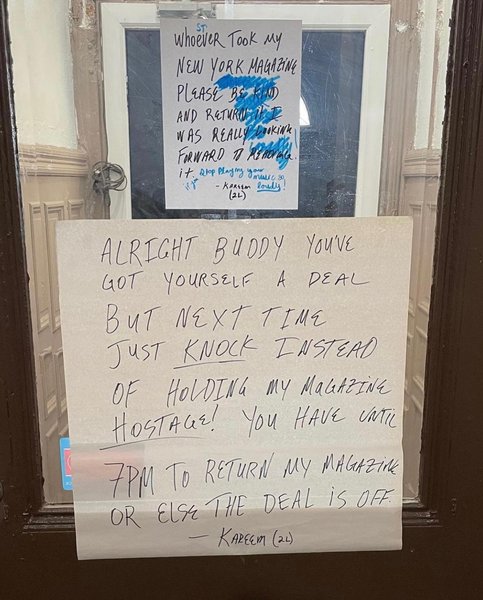 ST
WHOEVER TOOK MY
NEW YORK MAGAZINE
PLEASE BE KIND
AND RETURN IT I
WAS REALLY LOOKING
FORWARD TO READING.
it. Stop playing your
music so
loudly!
- KAREEM
(2L)
ALRIGHT BUDDY YOU'VE
GOT YOURSELF A DEAL
BUT NEXT TIME
JUST KNOCK INSTEAD
OF HOLDING MY MAGAZINE
HOSTAGE! YOU HAVE UNTIL
7PM TO RETURN MY MAGAZINE
OR ELSE THE DEAL IS OFF
— KAREEM (2L)